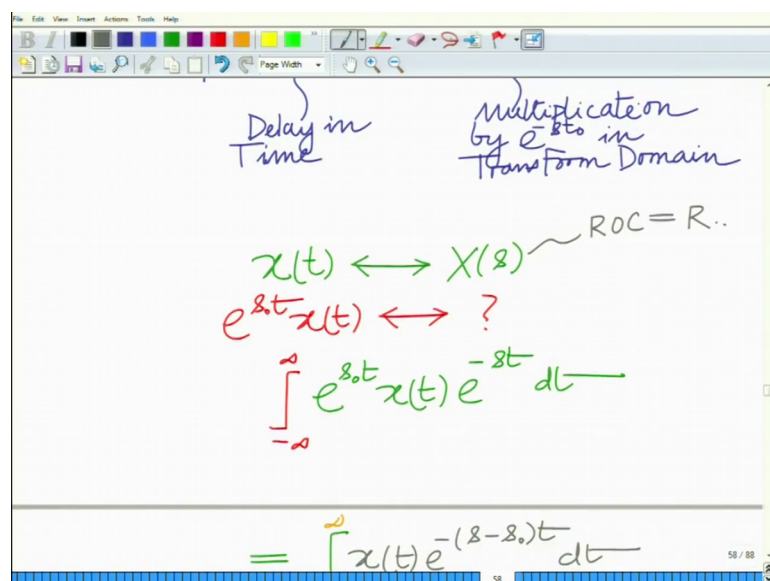 File Edit View Insert Actions Tools Help
B I Page Width
Delay in
Time
Multiplication
by e^{-st₀} in
Transform Domain
ROC = R..
x(t) ↔ X(s)
e^{s₀t} x(t) ↔ ?
∫_{-∞}^{∞} e^{s₀t} x(t) e^{-st} dt
= ∫^{∞} x(t) e^{-(s-s₀)t} dt
58 / 88
58